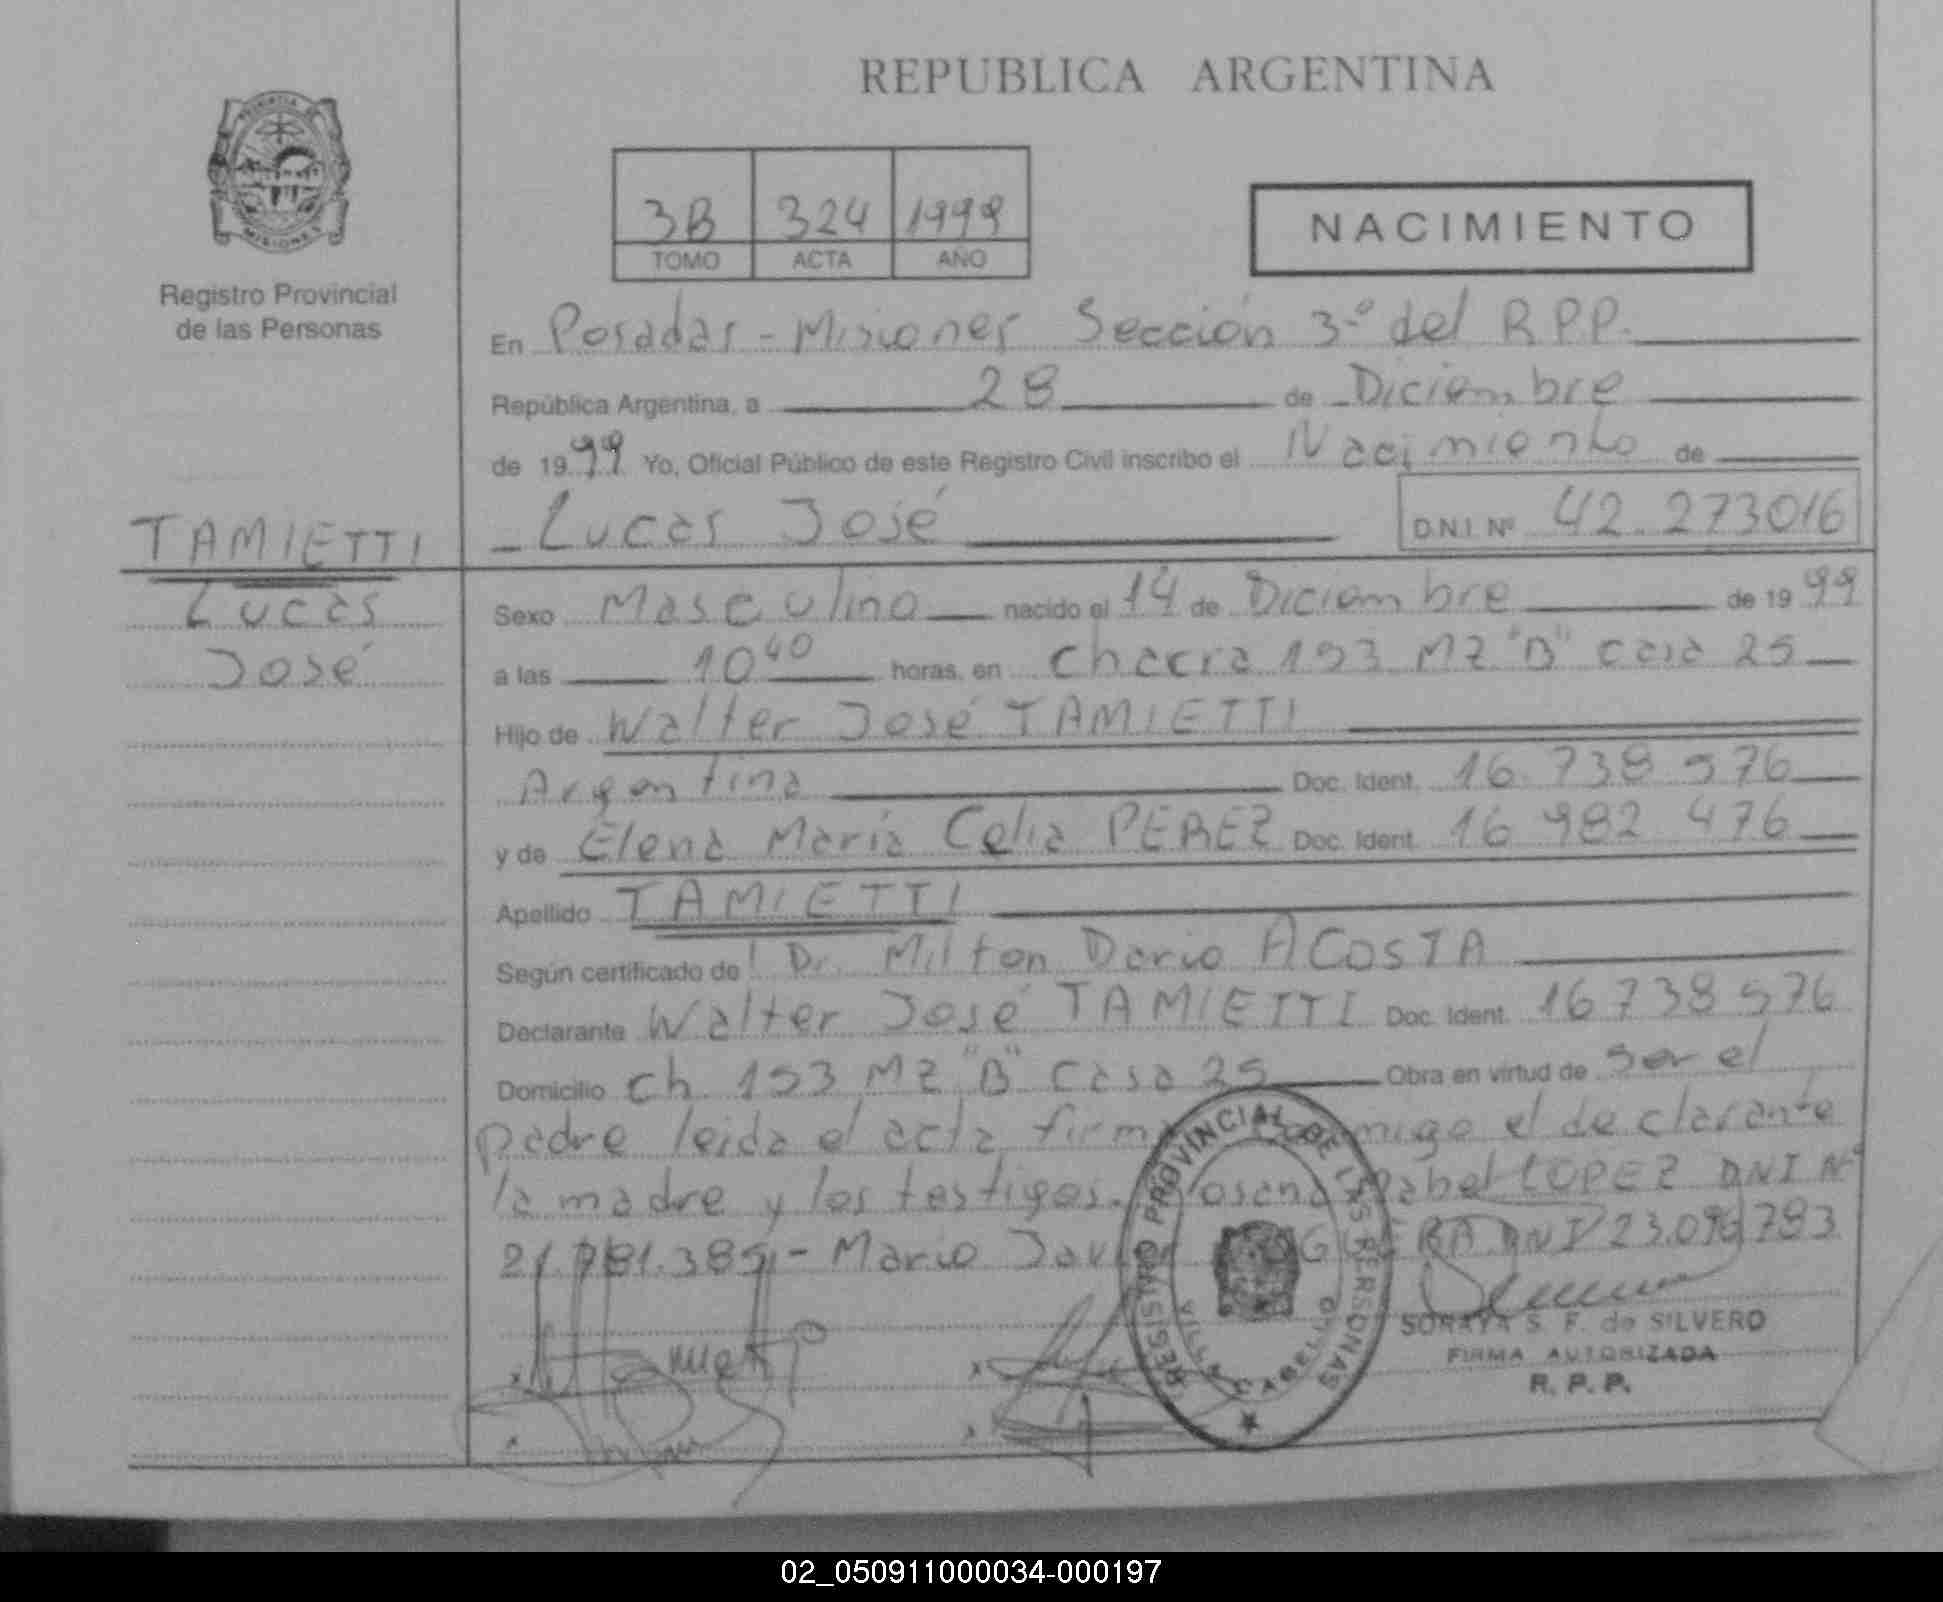 REPUBLICA ARGENTINA
MISIONES
Registro Provincial
de las Personas
3B 324 1999
TOMO ACTA AÑO
NACIMIENTO
En Posadas - Misiones Sección 3º del R.P.P.
República Argentina, a 28 de Diciembre
de 1999 Yo, Oficial Público de este Registro Civil inscribo el Nacimiento de
Lucas José D.N.I. Nº 42.273016
TAMIETTI
Lucas
José
Sexo Masculino nacido el 14 de Diciembre de 1999
a las 10 40 horas, en chacra 153 MZ "B" casa 25
Hijo de Walter José TAMIETTI
Argentina Doc. Ident. 16.738 576
y de Elena María Celia PEREZ Doc. Ident. 16 982 476
Apellido TAMIETTI
Según certificado de Dr. Milton Dario ACOSTA
Declarante Walter José TAMIETTI Doc. Ident. 16 738 576
Domicilio ch. 153 MZ "B" casa 25 Obra en virtud de ser el
padre leida el acta firma conmigo el declarante
la madre y los testigos. Rosana Mabel LOPEZ DNI Nº
Mario Javier DNI
REGISTRO PROVINCIAL DE LAS PERSONAS
VILLA CABELLO
SORAYA S. F. de SILVERO
FIRMA AUTORIZADA
R. P. P.
02_050911000034-000197